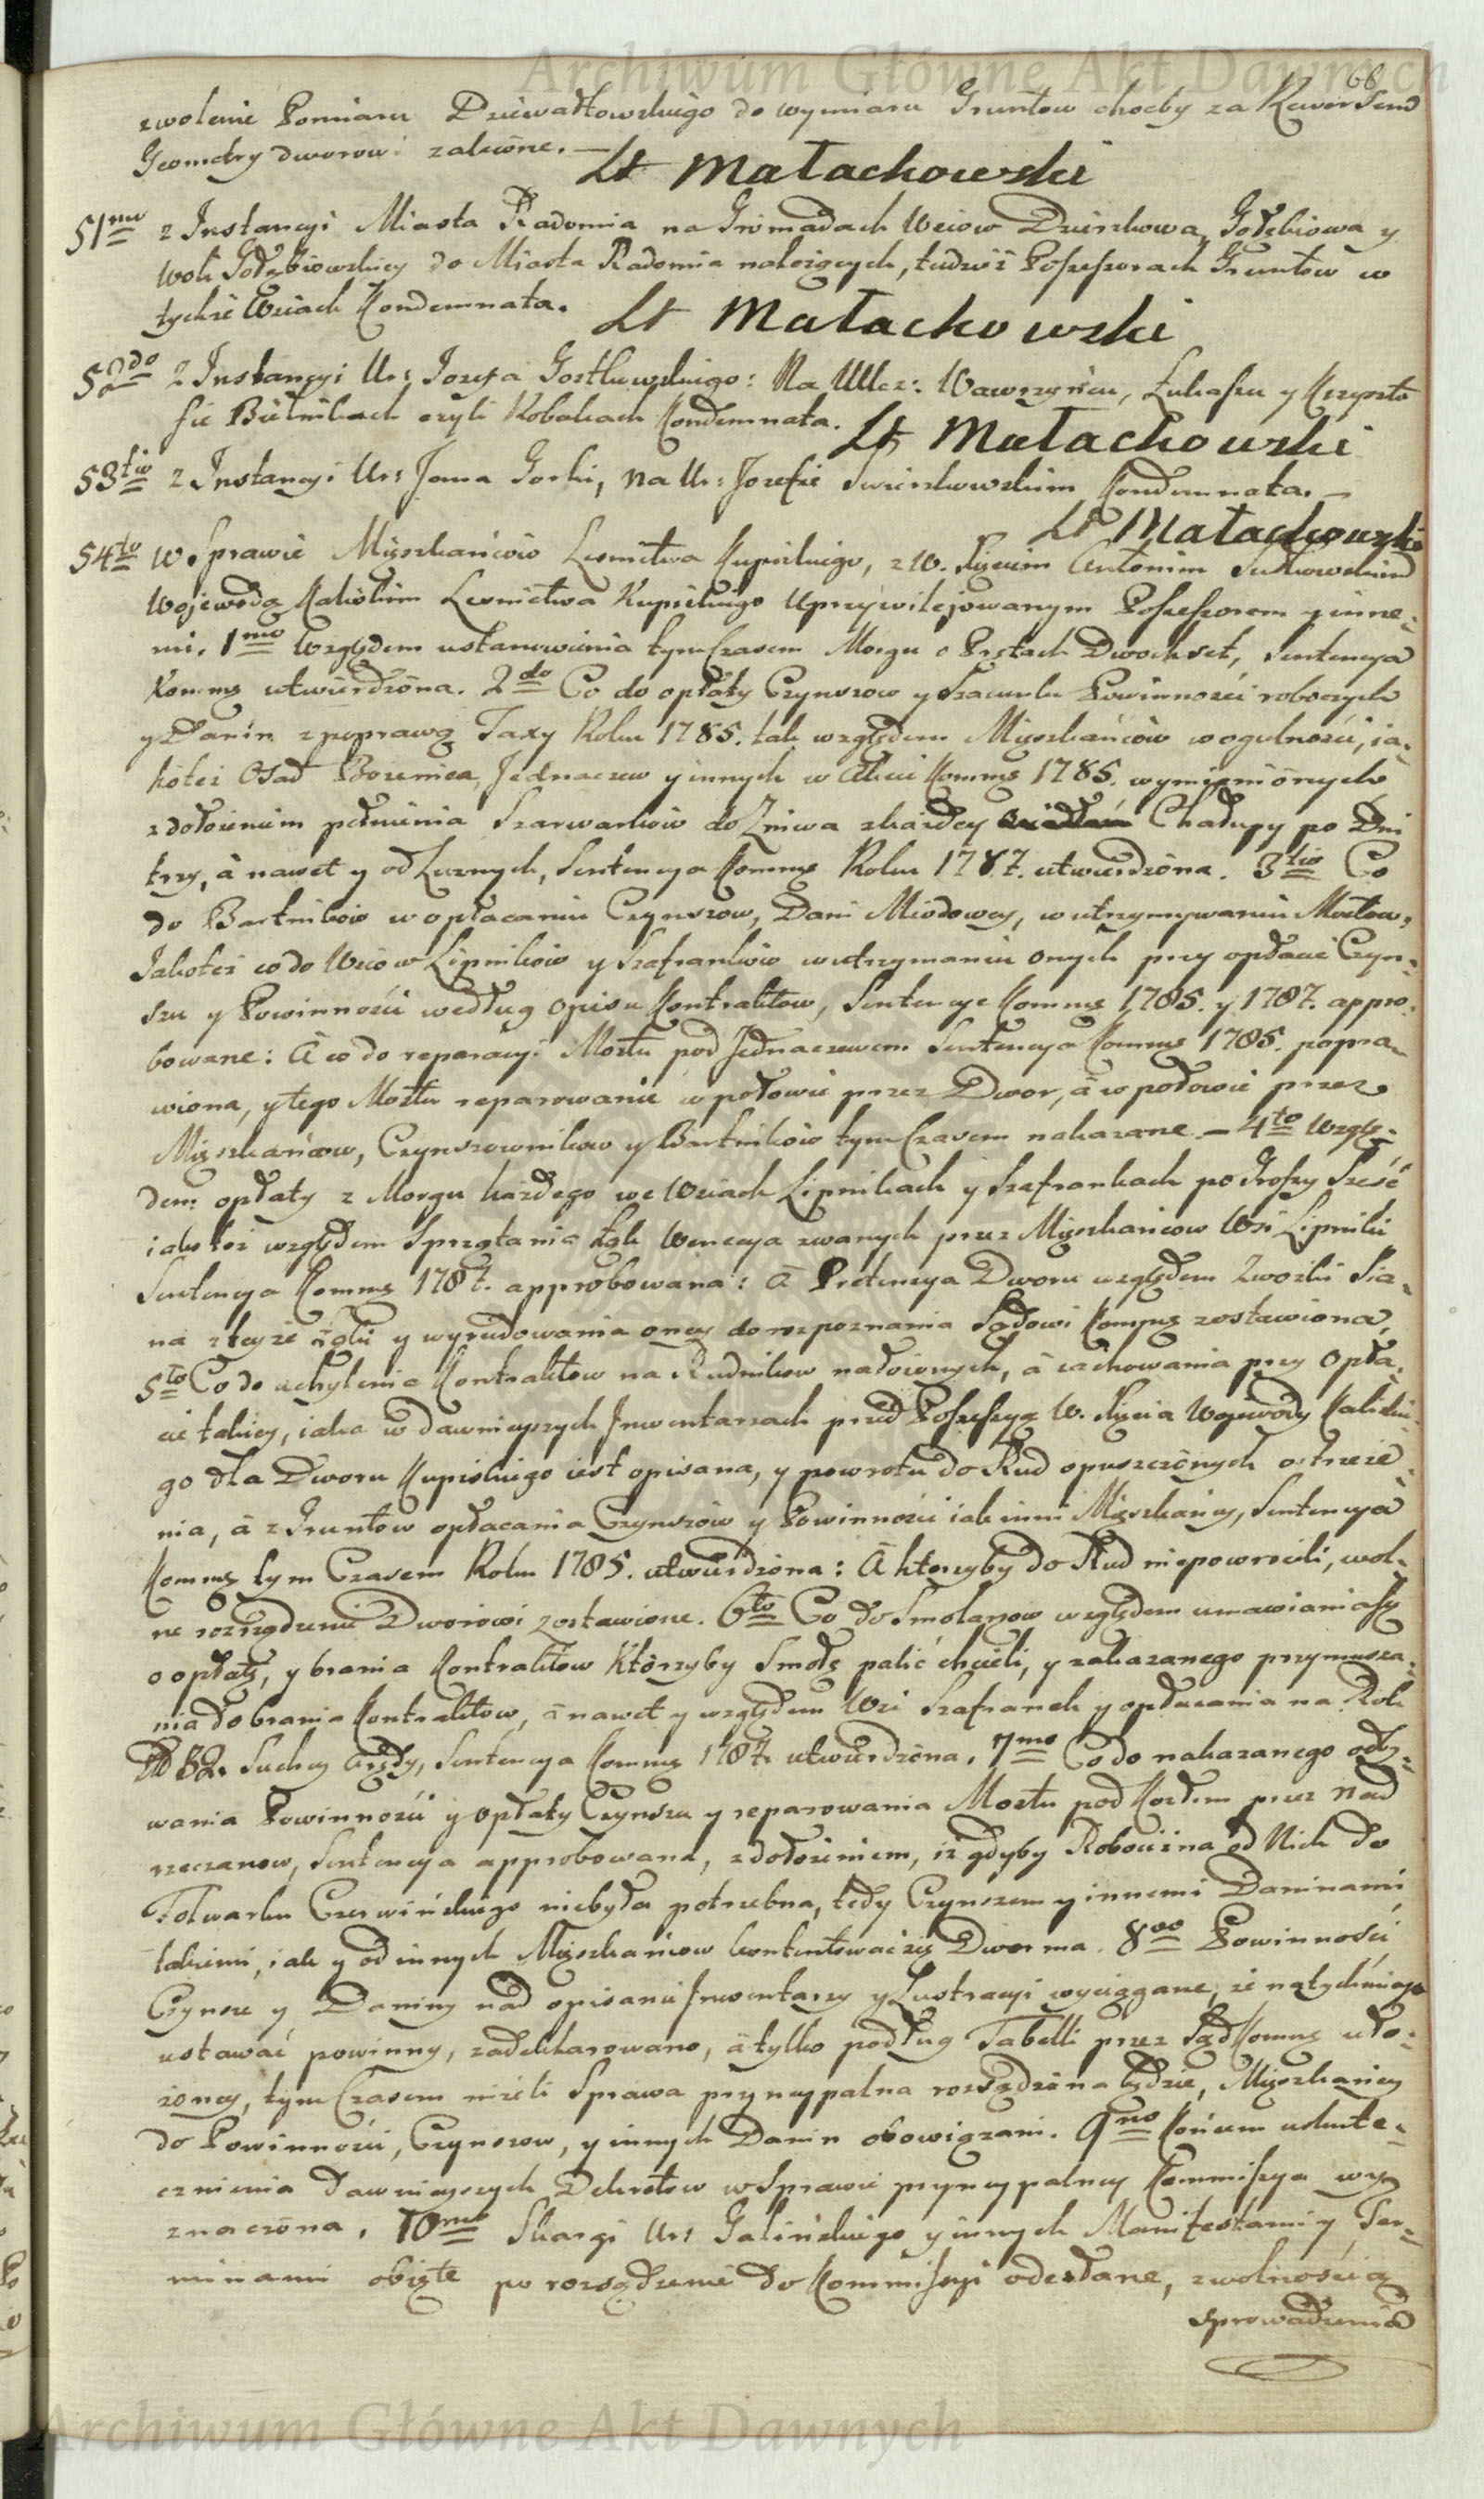 Archiwum Główne Akt Dawnych
68
zwolenie Pomiaru Dziewałtowskiego do wymiaru Gruntow choćby za Reversem
Geometry dworowi zalecone. —
Lt Małachowski
51mo z Instancyi Miasta Radomia na Gromadach Wsiow Dzierzkowa, Gołębiowa y
Woli Gołębiowskiey do Miasta Radomia należących, tudzież Possessorach Gruntow w
tychże Wsiach Kondemnata.
Lt Małachowski
52do z Instancyi Ur: Jozefa Gostkowskiego: Na Ulcz: Wawrzyńcu, Łukaszu y Krzyszto
fie Bielnikach czyli Kobakach Kondemnata.
Lt Małachowski
53tio z Instancyi Ur: Jana Gorki, na Ur: Jozefie Swierzkowskim Kondemnata. —
Lt Małachowski
54to W Sprawie Mięszkańcow Lesnictwa Kupiskiego, z W. Xięciem Antonim Sułkowskim
Wojewodą Kaliskim Lesnictwa Kupiskiego Uprzywilejowanym Possessorem y inne-
mi. 1mo Względem ustanowienia tym Czasem Morgu o Prętach Dwochset, Sentencya
Kommę utwierdzona. 2do Co do opłaty Czynszow y Szacunku Powinności roboczych
y Danin z poprawą Taxy Roku 1785. tak względem Mięszkańców w ogulności, ia-
koteż Osad Bozenica, Jednaczew y innych w Akcie Kommę 1785. wymienionych
z dołożeniem pełnienia Szarwarkow do Żniwa z każdey Chałupy po Dni
trzy, à nawet y od Luznych, Sentencya Kommę Roku 1787. utwierdzona. 3tio Co
do Bartnikow w opłacaniu Czynszow, Dani Miodowey, w utrzymywaniu Mostow,
Jakoteż co do Wsiow Lipnikow y Szafrankow w utrzymaniu onych przy opłacie Czyn-
szu y Powinności według opisu Kontraktow, Sentencye Kommę 1785. y 1787. appro-
bowane: à co do reparacyi Mostu pod Jednaczewem Sentencya Kommę 1785. popra-
wiona, y tego Mostu reparowanie w połowie przez Dwor, à w połowie przez
Mięszkańcow, Czynszownikow y Bartników tym Czasem nakazane. — 4to Wzglę-
dem opłaty z Morgu każdego we Wsiach Lipnikach y Szafrankach po Groszy Sześć
iakoteż względem Sprzątania Łąk Wenecya zwanych przez Mięszkańcow Wsi Lipniki
Sentencya Kommę 1787. approbowana: à Pretensya Dworu względem Zwozki Sia-
na z teyże Łąki y wyrudowania oney do rozpoznania Sądowi Kommę zostawiona,
5to Co do uchylenia Kontraktow na Rudnikow nałożonych, à zachowania przy Opła-
cie takiey, iaka w dawnieyszych Inwentarzach przed Possessyą W. Xięcia Wojewody Kaliskie-
go dla Dworu Kupiskiego iest opisana, y powrotu do Rud opuszczonych ostrzeże-
nia, à z Gruntow opłacania Czynszow y Powinności iak inni Mięszkańcy, Sentencya
Kommę tym Czasem Roku 1785. utwierdzona: à ktorzyby do Rud niepowrocili, wol-
ne rozrządzenie Dworowi zostawione. 6to Co do Smolarzow względem umawiania się
o opłatę, y brania Kontraktow Ktorzyby Smołę palić chcieli, y zakazanego przymusza-
nia do brania Kontraktow, à nawet y względem Wsi Szafranek y opłacania na Rok
32. Suchey Arędy, Sentencya Kommę 1787. utwierdzona. 7mo Co do nakazanego odby-
wania Powinności y opłaty Czynszu y reparowania Mostu pod Kozłem przez Nad
rzeczanow, Sentencya approbowana, z dołożeniem, iż gdyby Robocizna od Nich do
Folwarku Czerwińskiego niebyła potrzebna, tedy Czynszem y innemi Daninami
takiemi, iak y od innych Mięszkańcow kontentować się Dwor ma. 8vo Powinności
Czynsze y Daniny nad opisanie Inwentarzy y Lustracyi wyciągane, że natychmiast
ustawać powinny, zadeklarowano, à tylko podług Tabelli przez Sąd Kommę uło-
żoney, tym Czasem nizeli Sprawa pryncypalna rozsądzona będzie, Mięszkańcy
do Powinności, Czynszow, y innych Danin obowiązani. 9no Końcem uskute-
cznienia dawnieyszych Dekretow w Sprawie pryncypalney Kommissya wy-
znaczona. 10mo Skargi Ur: Galińskiego y innych Manifestami y Ter-
minami obięte po rozsądzenie do Kommissyi odesłane, z wolnością
sprowadzenia
Archiwum Główne Akt Dawnych